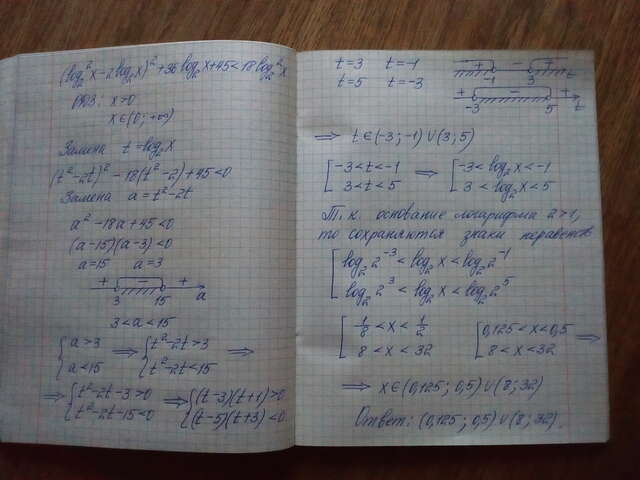 (log₂²x-2log₂x)²+36log₂x+45<18log₂²x
ОДЗ: x>0
x∈(0;+∞)
Замена t=log₂x
(t²-2t)²-18(t²-2)+45<0
Замена a=t²-2t
a²-18a+45<0
(a-15)(a-3)<0
a=15 a=3
+ - +
3 15 a
3<a<15
{a>3 ⇒ {t²-2t>3 ⇒
{a<15 {t²-2t<15
⇒ {t²-2t-3>0 ⇒ {(t-3)(t+1)>0
{t²-2t-15<0 {(t-5)(t+3)<0
t=3 t=-1
+ - +
-1 3 t
t=5 t=-3
+ - +
-3 5 t
⇒ t∈(-3;-1)∪(3;5)
[-3<t<-1 ⇒ [-3<log₂x<-1
[3<t<5 [3<log₂x<5
Т.к. основание логарифма a>1,
то сохраняются знаки неравенств
[log₂2⁻³<log₂x<log₂2⁻¹
[log₂2³<log₂x<log₂2⁵
[1/8<x<1/2 [0,125<x<0,5 ⇒
[8<x<32 [8<x<32
⇒ x∈(0,125;0,5)∪(8;32)
Ответ: (0,125;0,5)∪(8;32).